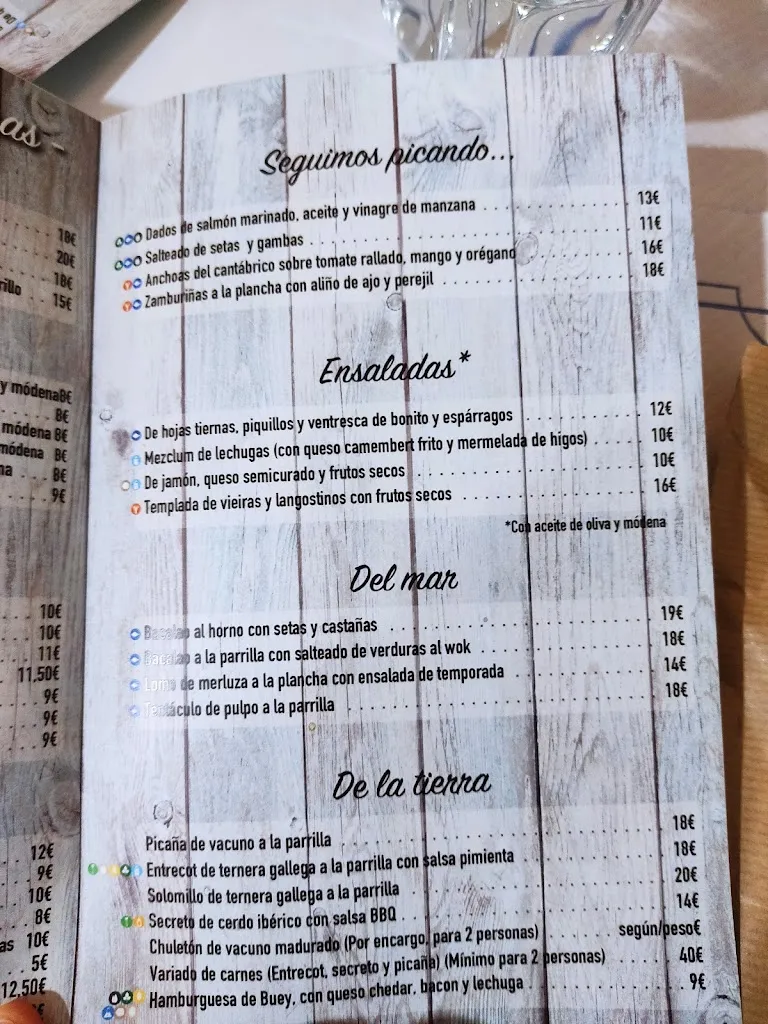 as -
18€
20€
18€
rillo 15€
y módena8€
8€
módena 8€
módena 8€
na 8€
9€
10€
10€
11€
11,50€
9€
9€
9€
12€
9€
10€
8€
as 10€
5€
12,50€
Seguimos picando...
Dados de salmón marinado, aceite y vinagre de manzana 13€
Salteado de setas y gambas 11€
Anchoas del cantábrico sobre tomate rallado, mango y orégano 16€
Zamburiñas a la plancha con aliño de ajo y perejil 18€
Ensaladas*
De hojas tiernas, piquillos y ventresca de bonito y espárragos 12€
Mezclum de lechugas (con queso camembert frito y mermelada de higos) 10€
De jamón, queso semicurado y frutos secos 10€
Templada de vieiras y langostinos con frutos secos 16€
*Con aceite de oliva y módena
Del mar
Bacalao al horno con setas y castañas 19€
Bacalao a la parrilla con salteado de verduras al wok 18€
Lomo de merluza a la plancha con ensalada de temporada 14€
Tentáculo de pulpo a la parrilla 18€
De la tierra
Picaña de vacuno a la parrilla 18€
Entrecot de ternera gallega a la parrilla con salsa pimienta 18€
Solomillo de ternera gallega a la parrilla 20€
Secreto de cerdo ibérico con salsa BBQ 14€
Chuletón de vacuno madurado (Por encargo, para 2 personas) según/peso€
Variado de carnes (Entrecot, secreto y picaña) (Mínimo para 2 personas) 40€
Hamburguesa de Buey, con queso chedar, bacon y lechuga 9€